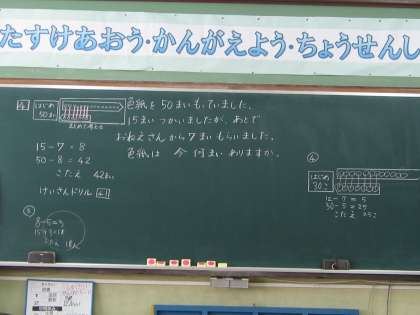 たすけあおう・かんがえよう・ちょうせんし
4
はじめ
50まい
色紙を50まいもっていました。
15まいつかいましたが、あとで
おねえさんから7まいもらいました。
色紙は 今 何まいありますか。
15-7=8
50-8=42
こたえ 42まい
けいさんドリル 41
③
8-5=3
15+3=18
こたえ 18
④
はじめ
30こ
12-7=5
30-5=25
こたえ 25こ